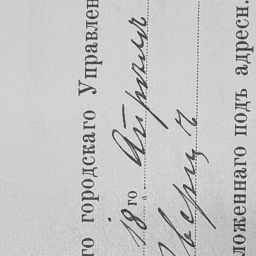 го городскаго Управлен
18го Апреля
Тверцъ
ложеннаго подъ адресн.